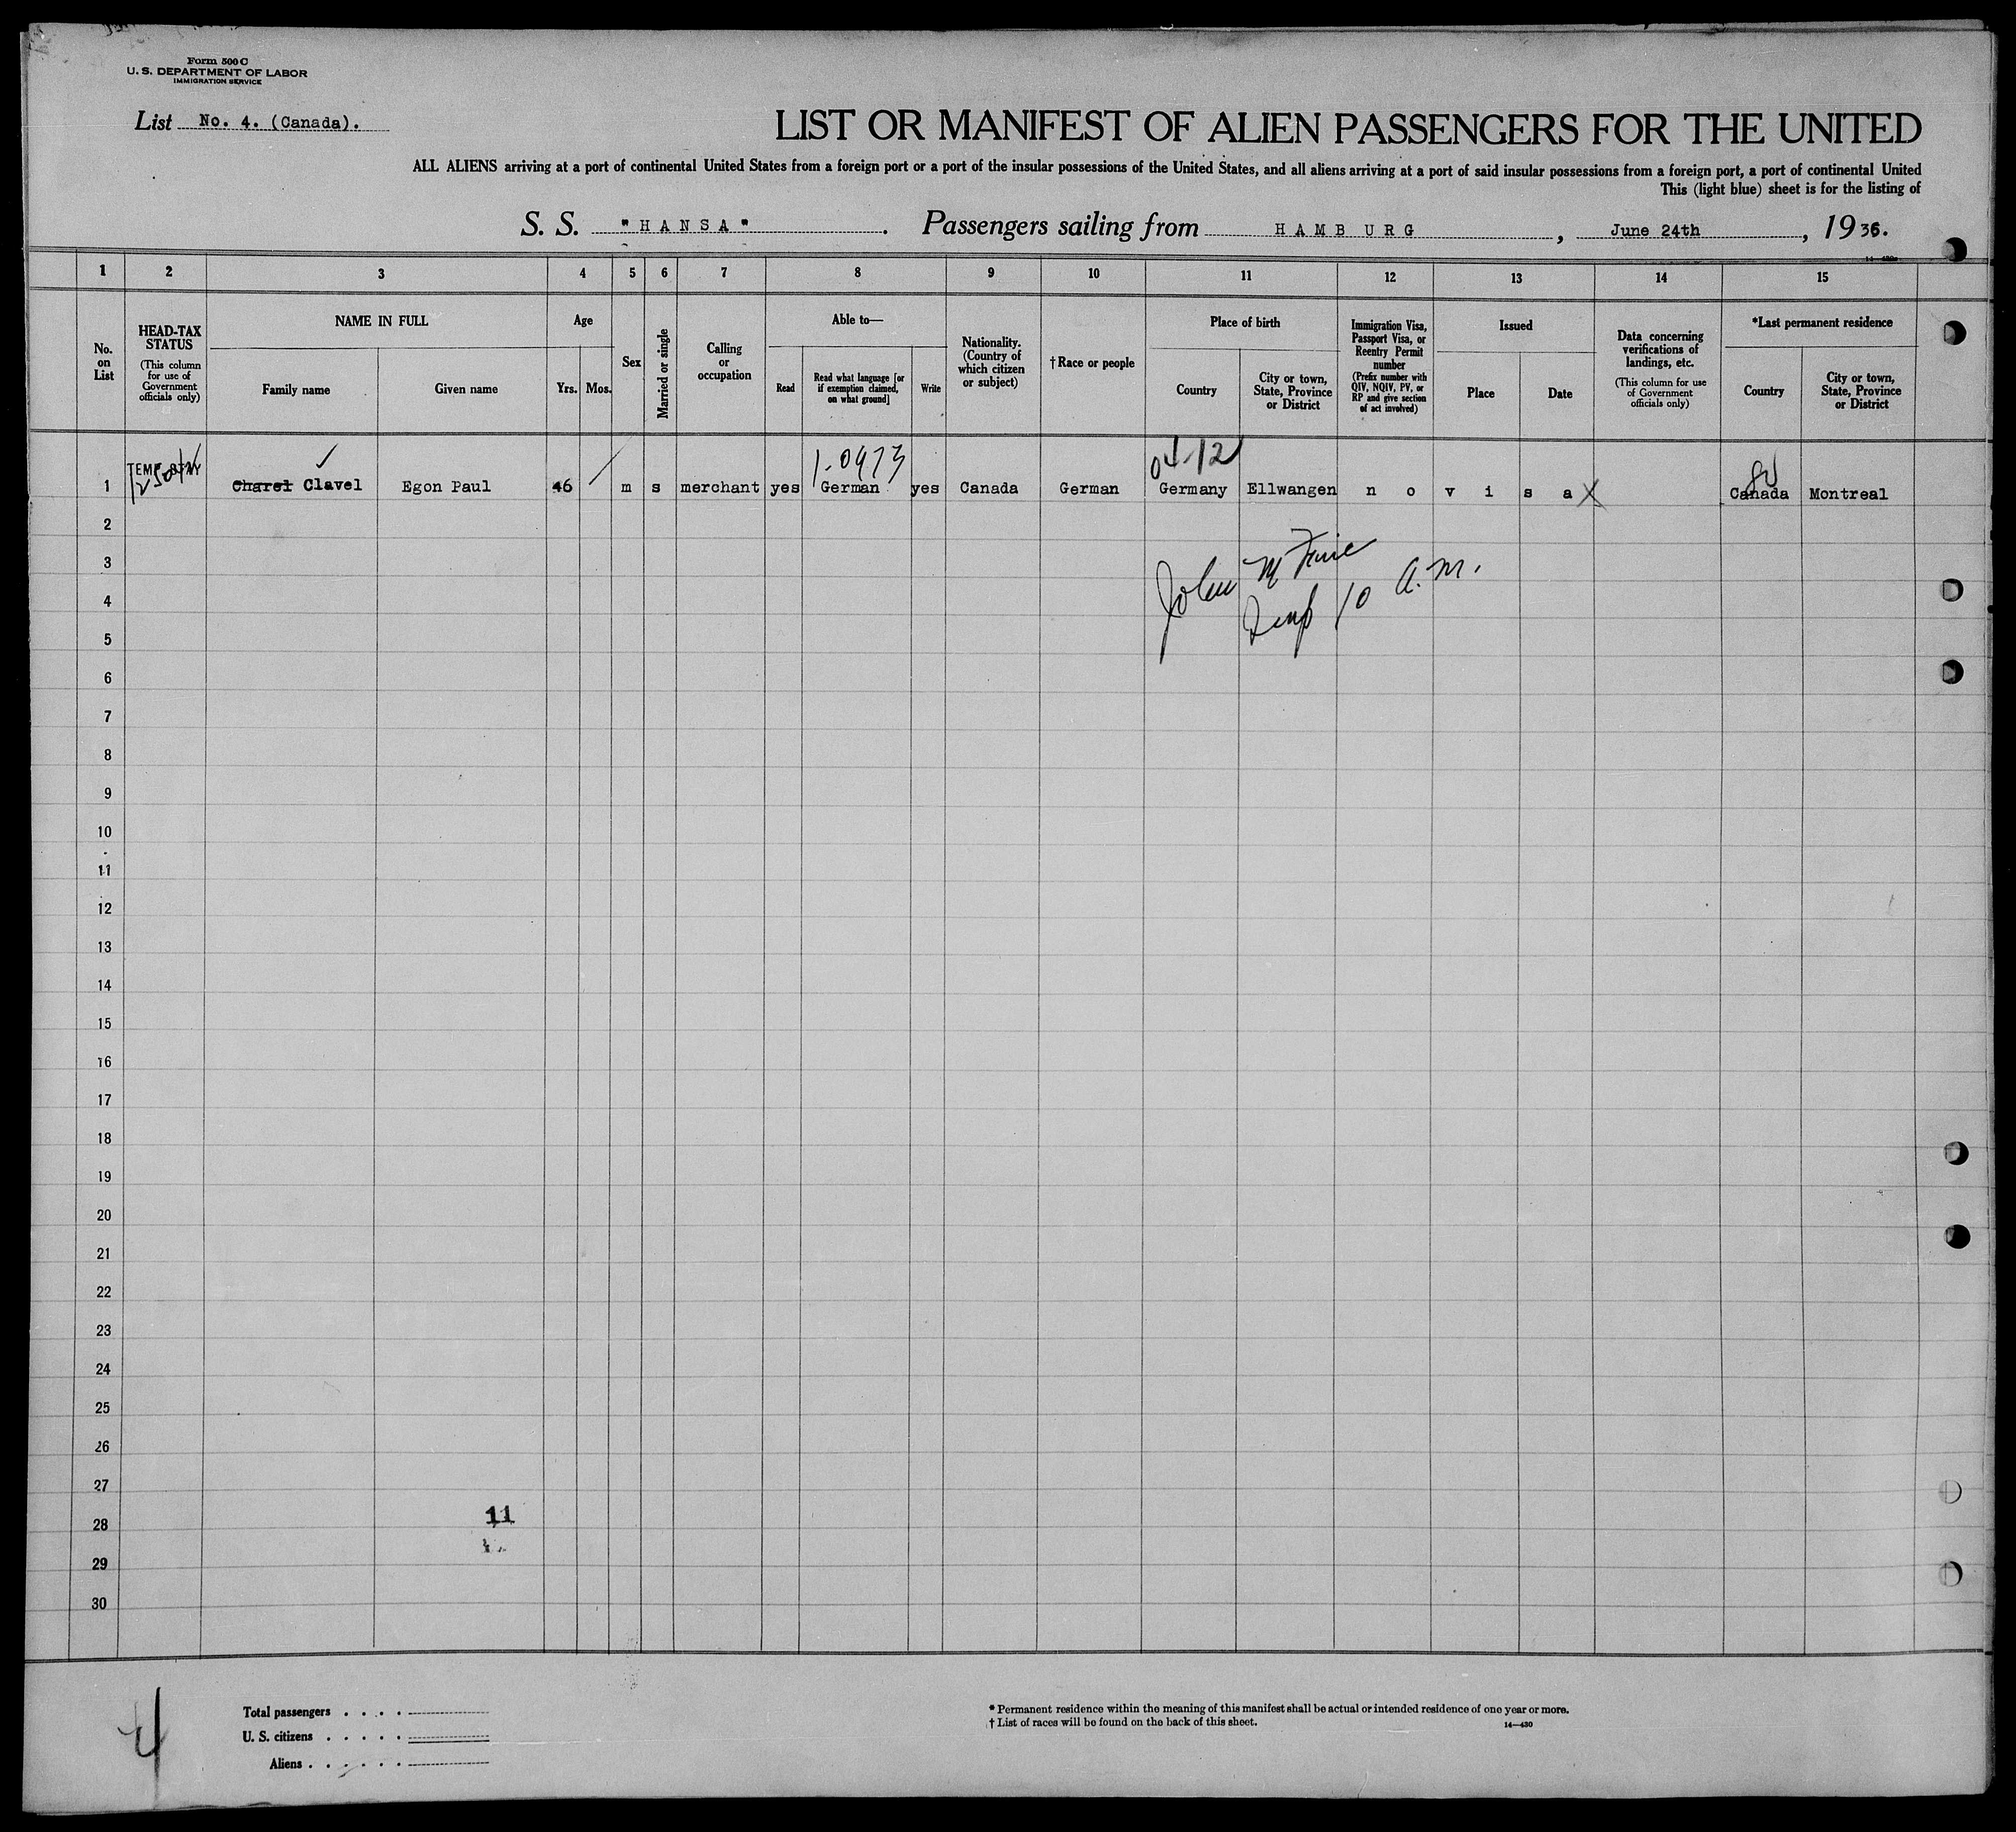 Form 500 C
U. S. DEPARTMENT OF LABOR
IMMIGRATION SERVICE
List No. 4. (Canada).
LIST OR MANIFEST OF ALIEN PASSENGERS FOR THE UNITED
ALL ALIENS arriving at a port of continental United States from a foreign port or a port of the insular possessions of the United States, and all aliens arriving at a port of said insular possessions from a foreign port, a port of continental United
This (light blue) sheet is for the listing of
S. S. "HANSA". Passengers sailing from HAMBURG, June 24th, 1936.
14-430
1 2 3 4 5 6 7 8 9 10 11 12 13 14 15
No. on List
HEAD-TAX STATUS
(This column for use of Government officials only)
NAME IN FULL
Family name
Given name
Age
Yrs.
Mos.
Sex
Married or single
Calling or occupation
Able to—
Read
Read what language [or if exemption claimed, on what ground]
Write
Nationality. (Country of which citizen or subject)
†Race or people
Place of birth
Country
City or town, State, Province or District
Immigration Visa, Passport Visa, or Reentry Permit number
(Prefix number with QIV, NQIV, PV, or RP and give section of act involved)
Issued
Place
Date
Data concerning verifications of landings, etc.
(This column for use of Government officials only)
*Last permanent residence
Country
City or town, State, Province or District
TEMP. STAY
1-0973
04-12
1 Charel Clavel Egon Paul 46 m s merchant yes German yes Canada German Germany Ellwangen no visa X Canada Montreal
2
3
John M
4
10 A.M.
5
6
7
8
9
10
11
12
13
14
15
16
17
18
19
20
21
22
23
24
25
26
27
11
28
29
30
4
Total passengers . . . .
U. S. citizens . . . . .
Aliens . . . . . .
* Permanent residence within the meaning of this manifest shall be actual or intended residence of one year or more.
† List of races will be found on the back of this sheet.
14—430